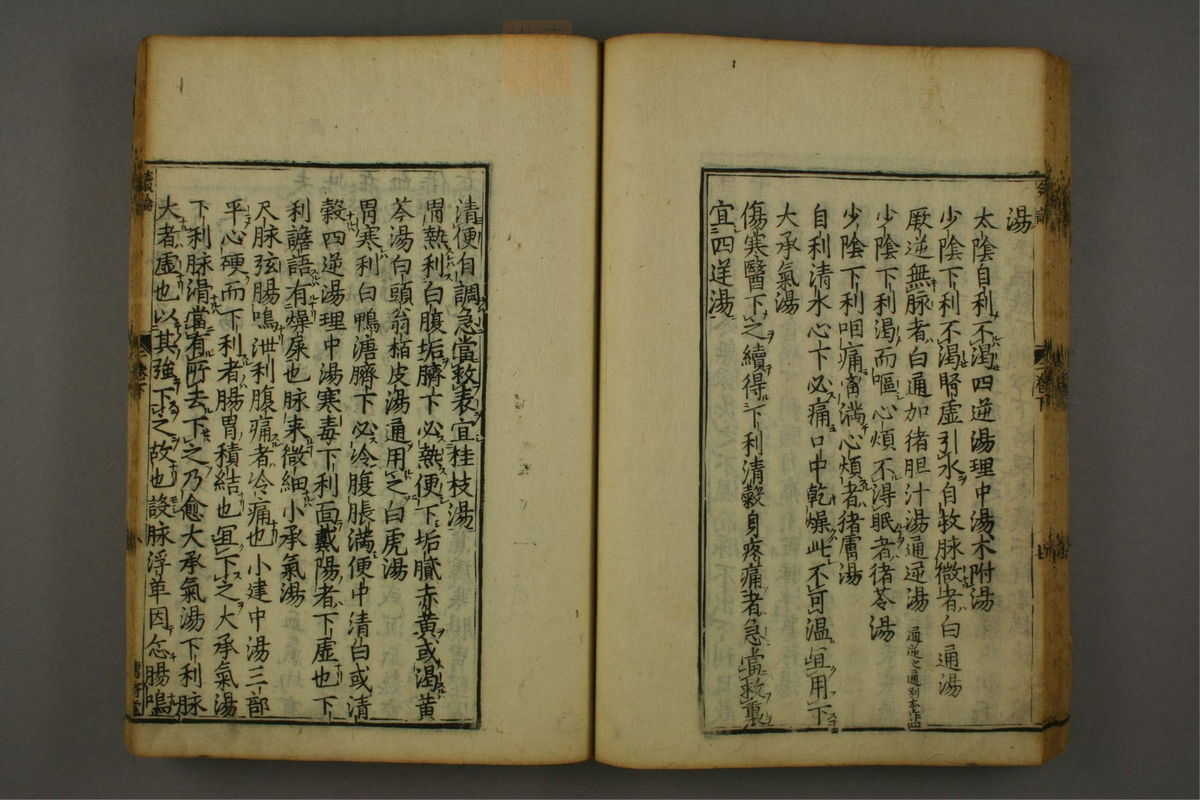 湯
太陰自利不渴四逆湯理中湯术附湯
少陰下利不渴腎虛引水自救脉微者白通湯
厥逆無脉者白通加猪胆汁湯通逆湯 通逆之通別本作四
少陰下利渴而嘔心煩不得眠者猪苓湯
少陰下利咽痛胷满心煩者猪膚湯
自利清水心下必痛口中乾燥此不可温宜用下
大承氣湯
傷寒醫下之續得下利清穀身疼痛者急當救裏
宜四逆湯
卷下
七
清便自調急當救表宜桂枝湯
胃熱利白腹垢臍下必熱便下垢膩赤黄或渴黄
芩湯白頭翁栢皮湯通用之白虎湯
胃寒利白鴨溏臍下必冷腹脹満便中清白或清
穀四逆湯理中湯寒毒下利面戴陽者下虛也下
利譫語有燥屎也脉来微細小承氣湯
尺脉弦腸鳴泄利腹痛者冷痛也小建中湯三部
平心硬而下利者腸胃積結也宜下之大承氣湯
下利脉滑當有所去下之乃愈大承氣湯下利脉
大者虛也以其強下之故也設脉浮革因怎腸鳴
續論
卷下